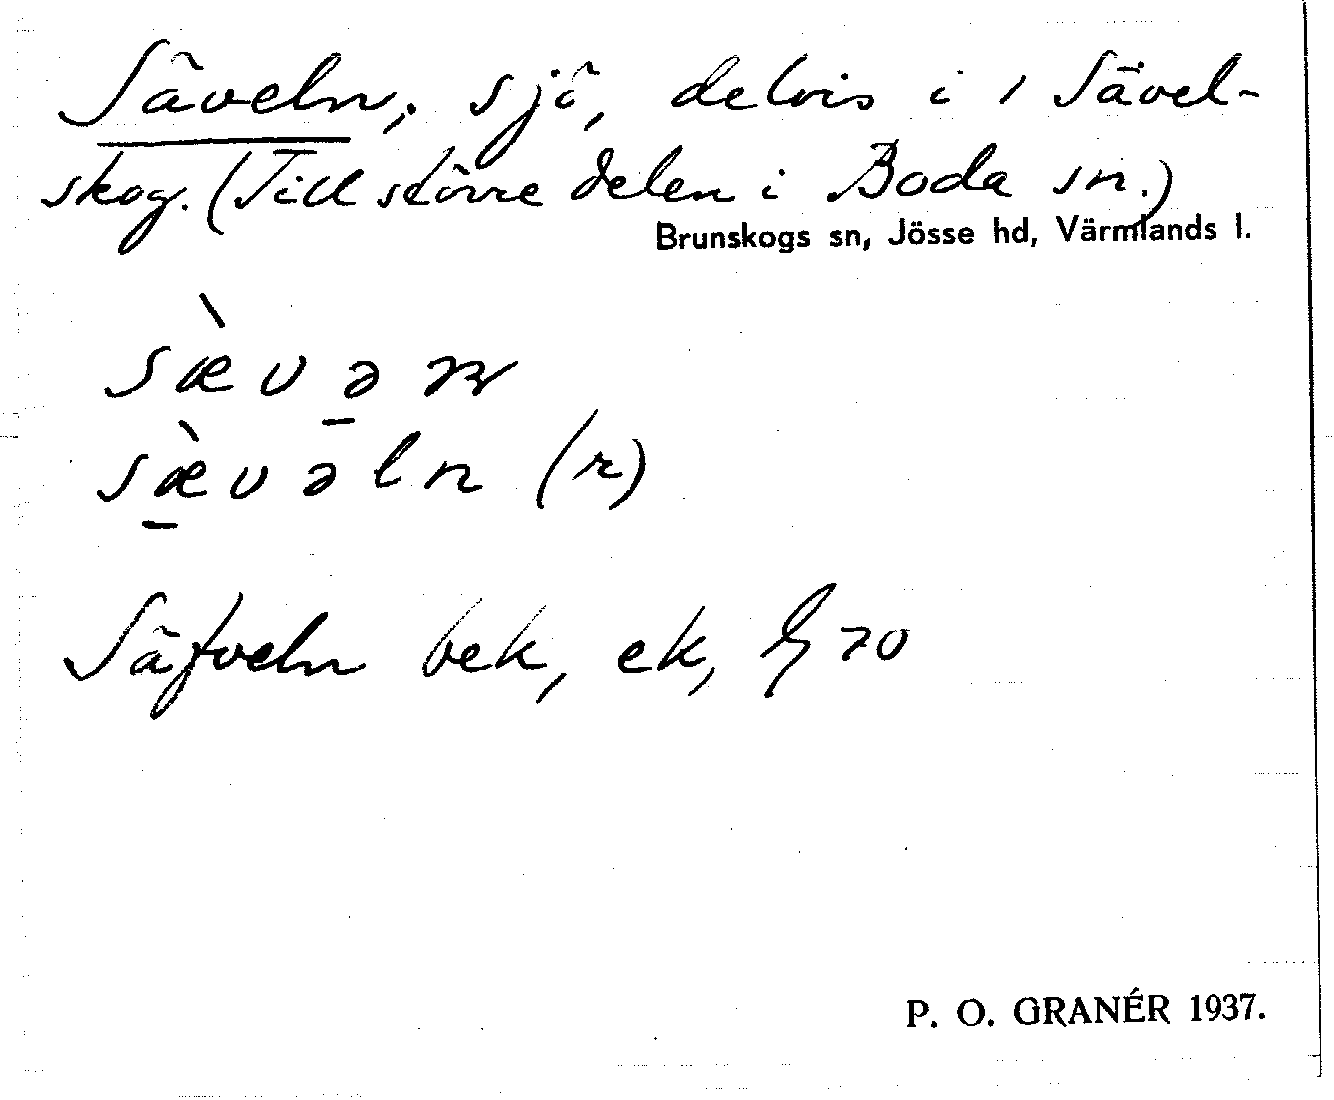 Säveln, sjö, delvis i 1 Sävel-
skog. (Till större delen i Boda sn.)
Brunskogs sn, Jösse hd, Värmlands l.
sæ̀vəln (r)
Säfveln bek, ek, 70
P. O. GRANÉR 1937.